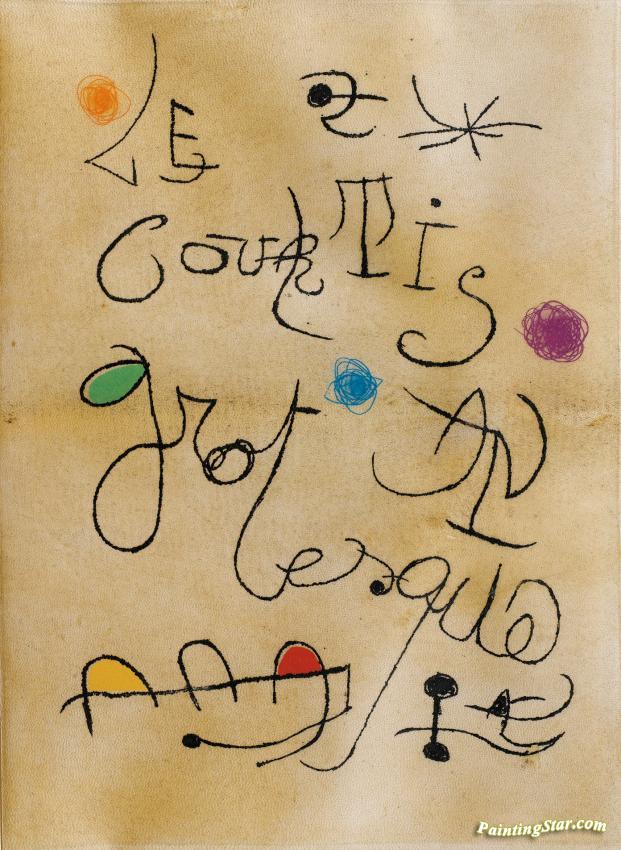 LE
courTis
grotesque
PaintingStar.com